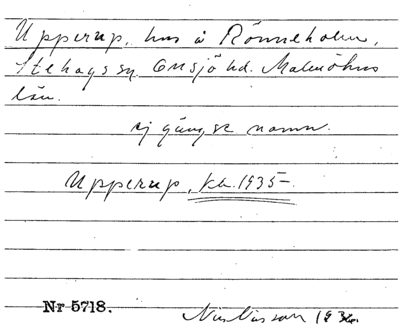 Upperup, hus å Rönneholm,
Stehags sn. Onsjö hd. Malmöhus
län.
ej gängse namn.
Upperup, kb. 1935-
Nr 5718.
Nils Nilsson 1936.